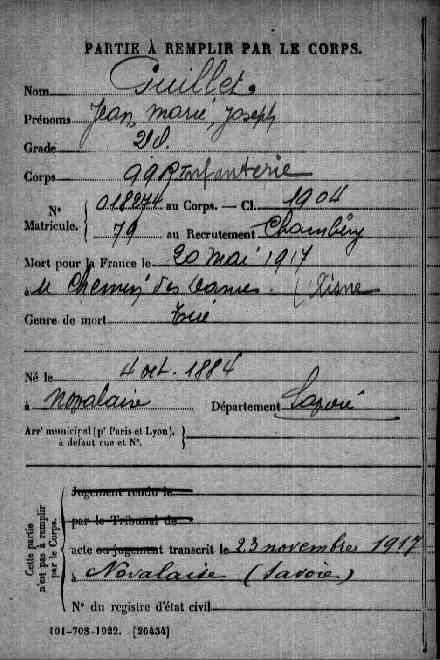 PARTIE À REMPLIR PAR LE CORPS.
Nom Guillet
Prénoms Jean, Marie, Joseph
Grade 2d.
Corps 99 R Infanterie
N° Matricule. { 018274 au Corps. — Cl. 1904
79 au Recrutement Chambéry
Mort pour la France le 20 mai 1917
à Chemin des Dames. (Aisne
Genre de mort Tué
Né le 4 oct. 1884
à Novalaise Département Savoie
Arrt municipal (pr Paris et Lyon), à défaut rue et N°. }
Cette partie n'est pas à remplir par le Corps.
Jugement rendu le
par le Tribunal de
acte ou jugement transcrit le 23 novembre 1917
à Novalaise (Savoie)
N° du registre d'état civil
101-708-1922. [26434]